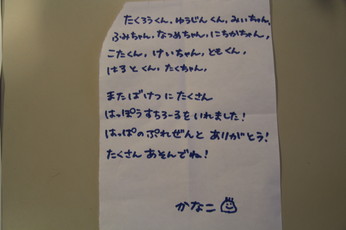 たくろうくん，ゆうじんくん，みぃちゃん，
ふみちゃん，なつめちゃん，にちかちゃん，
こたくん，けいちゃん，ともくん，
はるとくん，たくちゃん，
またばけつにたくさん
はっぽうすちろーるをいれました！
はっぱのぷれぜんとありがとう！
たくさんあそんでね！
かなこ